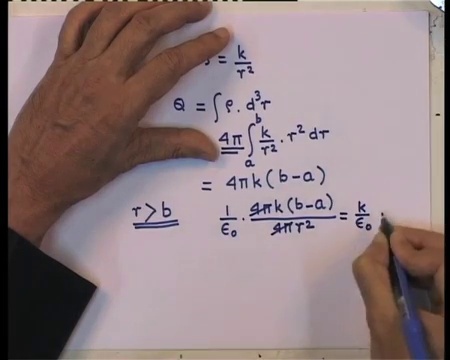 = k/r²
Q = ∫ ρ. d³r
4π ∫ₐᵇ k/r² . r² dr
= 4πk(b-a)
r > b 1/ε₀ . 4πk(b-a)/4πr² = k/ε₀